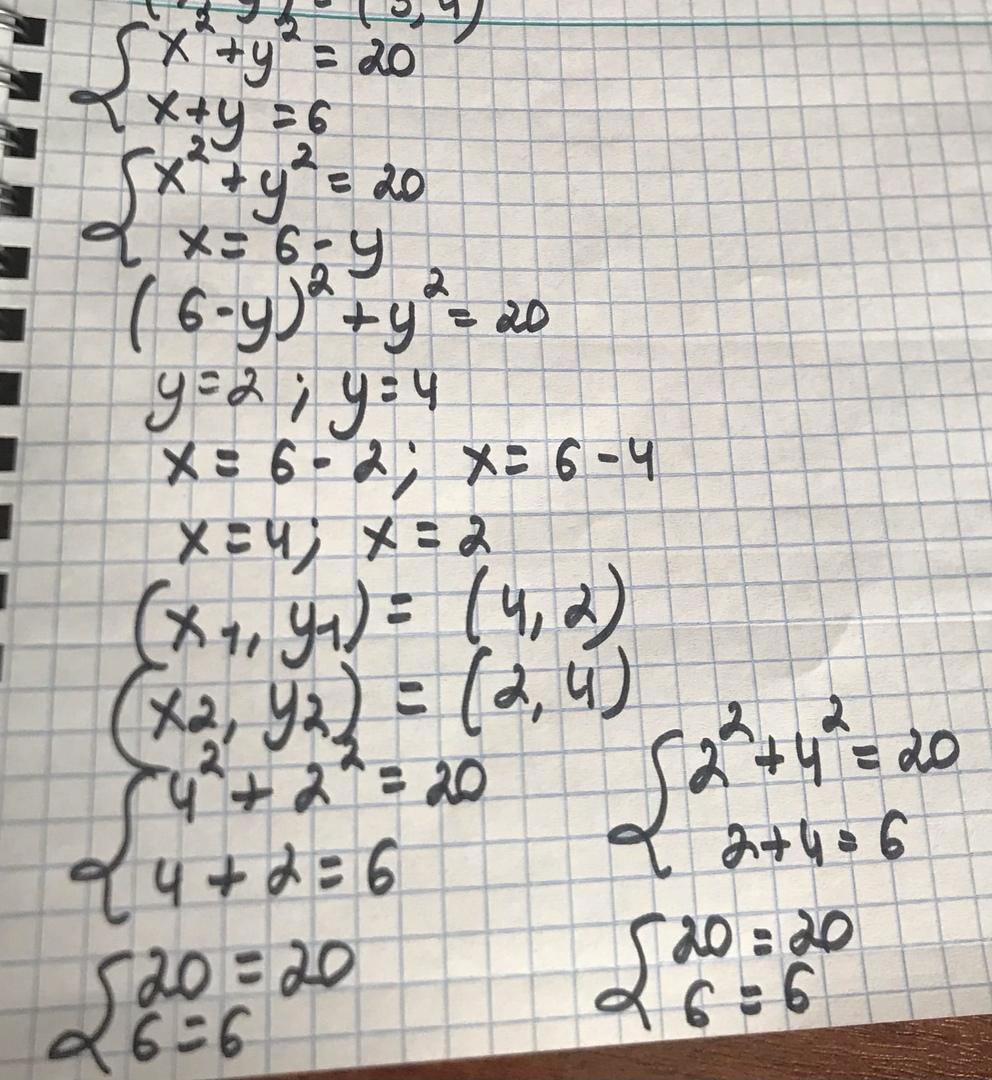 x² + y² = 20
x + y = 6
x² + y² = 20
x = 6 - y
(6 - y)² + y² = 20
y = 2 ; y = 4
x = 6 - 2; x = 6 - 4
x = 4; x = 2
(x1, y1) = (4, 2)
(x2, y2) = (2, 4)
4² + 2² = 20
4 + 2 = 6
2² + 4² = 20
2 + 4 = 6
20 = 20
6 = 6
20 = 20
6 = 6